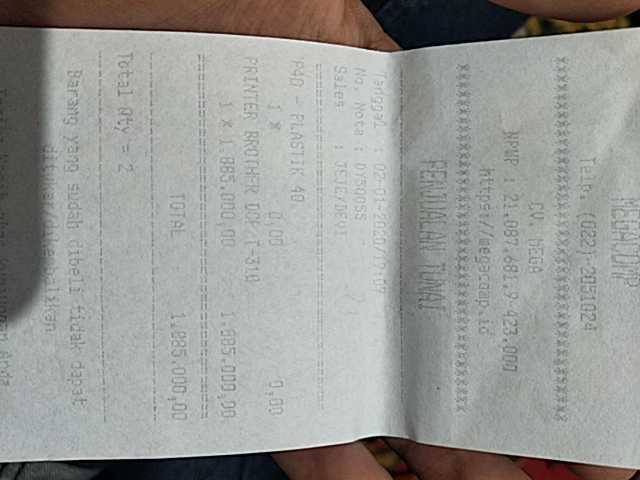 MEGACOMP
Telp. (022) 2031024
xxxxxxxxxxxxxxxxxxxxxxxxxxxxxxxxxxxxxxxx
CV. MEGA
NPWP : 21.087.681.9-423.000
https://megacomp.id
xxxxxxxxxxxxxxxxxxxxxxxxxxxxxxxxxxxxxxxx
PENJUALAN TUNAI
Tanggal : 02-01-2020/
No. Nota : 0750055
Sales : TEJE/DEVI
========================================
P40 - PLASTIK 40
1 X 0,00 0,00
PRINTER BROTHER DCP-T-310
1 X 1.885.000,00 1.885.000,00
========================================
TOTAL 1.885.000,00
----------------------------------------
Total Qty = 2
----------------------------------------
Barang yang sudah dibeli tidak dapat
ditukar/dikembalikan
Anda